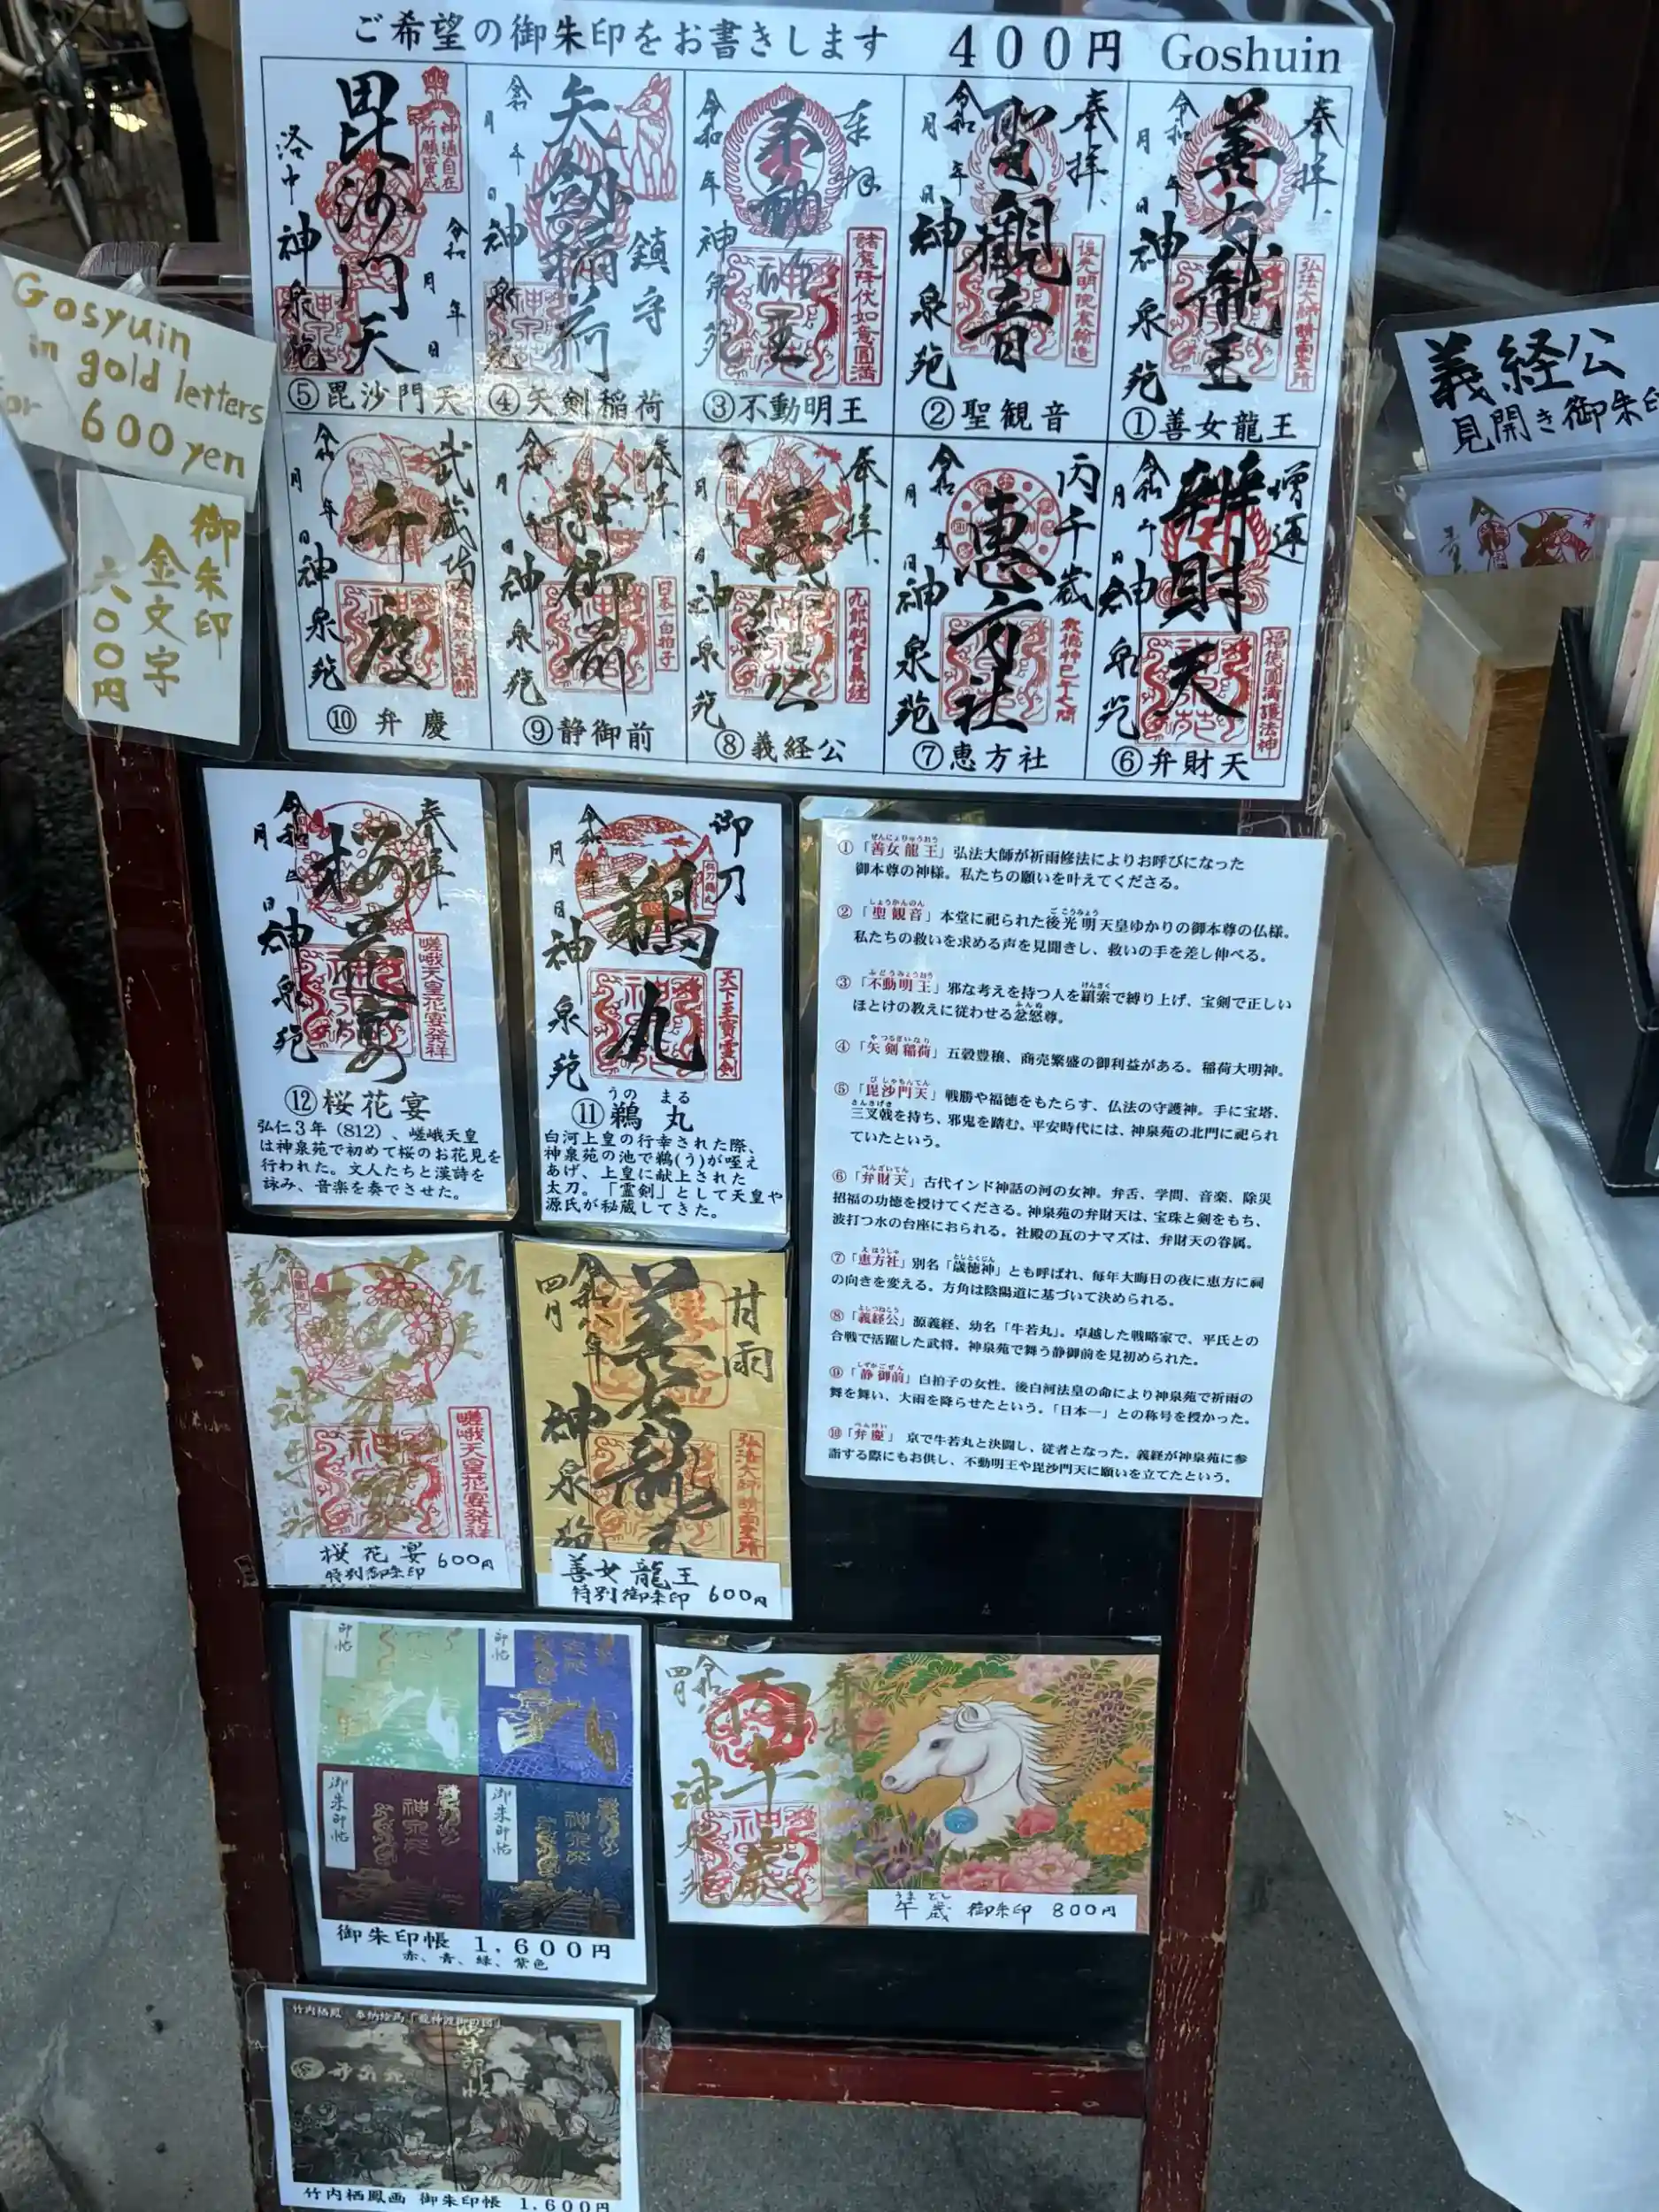 ご希望の御朱印をお書きします　４００円　Goshuin
奉拝
善女龍王
令和 年 月 日
神泉苑
弘法大師
①善女龍王
奉拝
聖観音
令和 年 月 日
神泉苑
②聖観音
不動明王
令和 年
神泉苑
諸魔降伏如意圓満
③不動明王
矢劔稲荷
鎮守
令和 年 月 日
神泉苑
④矢剣稲荷
毘沙門天
神通自在
所願皆成
令和 年 月 日
洛中 神泉苑
⑤毘沙門天
増運
辨財天
令和 年 月 日
神泉苑
福徳圓満護法神
⑥弁財天
丙午歳
恵方社
令和 年 月 日
神泉苑
⑦恵方社
奉拝
義経公
神泉苑
九郎判官義経
⑧義経公
奉拝
静御前
神泉苑
日本一白拍子
⑨静御前
武蔵坊
弁慶
令和 年 月 日
神泉苑
⑩弁慶
Gosyuin
in gold letters
for 600 yen
御朱印
金文字
六〇〇円
義経公
見開き御朱印
奉拝
桜花宴
令和 年 月 日
神泉苑
嵯峨天皇花宴発祥
⑫桜花宴
弘仁３年（812）、嵯峨天皇
は神泉苑で初めて桜のお花見を
行われた。文人たちと漢詩を
詠み、音楽を奏でさせた。
御刀
鵜丸
令和 年 月 日
神泉苑
天下至寶霊剣
うの　まる
⑪鵜丸
白河上皇の行幸された際、
神泉苑の池で鵜(う)が咥え
あげ、上皇に献上された
太刀。「霊剣」として天皇や
源氏が秘蔵してきた。
ぜんにょりゅうおう
①「善女龍王」弘法大師が祈雨修法によりお呼びになった
御本尊の神様。私たちの願いを叶えてくださる。
しょうかんのん　ごこうみょう
②「聖観音」本堂に祀られた後光明天皇ゆかりの御本尊の仏様。
私たちの救いを求める声を見聞きし、救いの手を差し伸べる。
ふどうみょうおう　けんさく
③「不動明王」邪な考えを持つ人を羂索で縛り上げ、宝剣で正しい
ふんぬ
ほとけの教えに従わせる忿怒尊。
やつるぎいなり
④「矢剣稲荷」五穀豊穣、商売繁盛の御利益がある。稲荷大明神。
びしゃもんてん
⑤「毘沙門天」戦勝や福徳をもたらす、仏法の守護神。手に宝塔、
さんさげき
三叉戟を持ち、邪鬼を踏む。平安時代には、神泉苑の北門に祀られ
ていたという。
べんざいてん
⑥「弁財天」古代インド神話の河の女神。弁舌、学問、音楽、除災
招福の功徳を授けてくださる。神泉苑の弁財天は、宝珠と剣をもち、
波打つ水の台座におられる。社殿の瓦のナマズは、弁財天の眷属。
えほうしゃ　としとくじん
⑦「恵方社」別名「歳徳神」とも呼ばれ、毎年大晦日の夜に恵方に祠
の向きを変える。方角は陰陽道に基づいて決められる。
よしつねこう
⑧「義経公」源義経、幼名「牛若丸」。卓越した戦略家で、平氏との
合戦で活躍した武将。神泉苑で舞う静御前を見初められた。
しずかごぜん
⑨「静御前」白拍子の女性。後白河法皇の命により神泉苑で祈雨の
舞を舞い、大雨を降らせたという。「日本一」との称号を授かった。
べんけい
⑩「弁慶」 京で牛若丸と決闘し、従者となった。義経が神泉苑に参
詣する際にもお供し、不動明王や毘沙門天に願いを立てたという。
嵯峨天皇花宴発祥
桜花宴 600円
特別御朱印
甘雨
善女龍王
令和八年
四月
神泉苑
善女龍王
特別御朱印 600円
御朱印帖
御朱印帖
神泉苑
御朱印帳 １，６００円
赤、青、緑、紫色
奉拝
丙午歳
令和八年
四月
神泉苑
うま どし
午歳 御朱印 800円
竹内栖鳳 奉納絵馬「龍神渡御の図」
竹内栖鳳画 御朱印帳 １,６００円